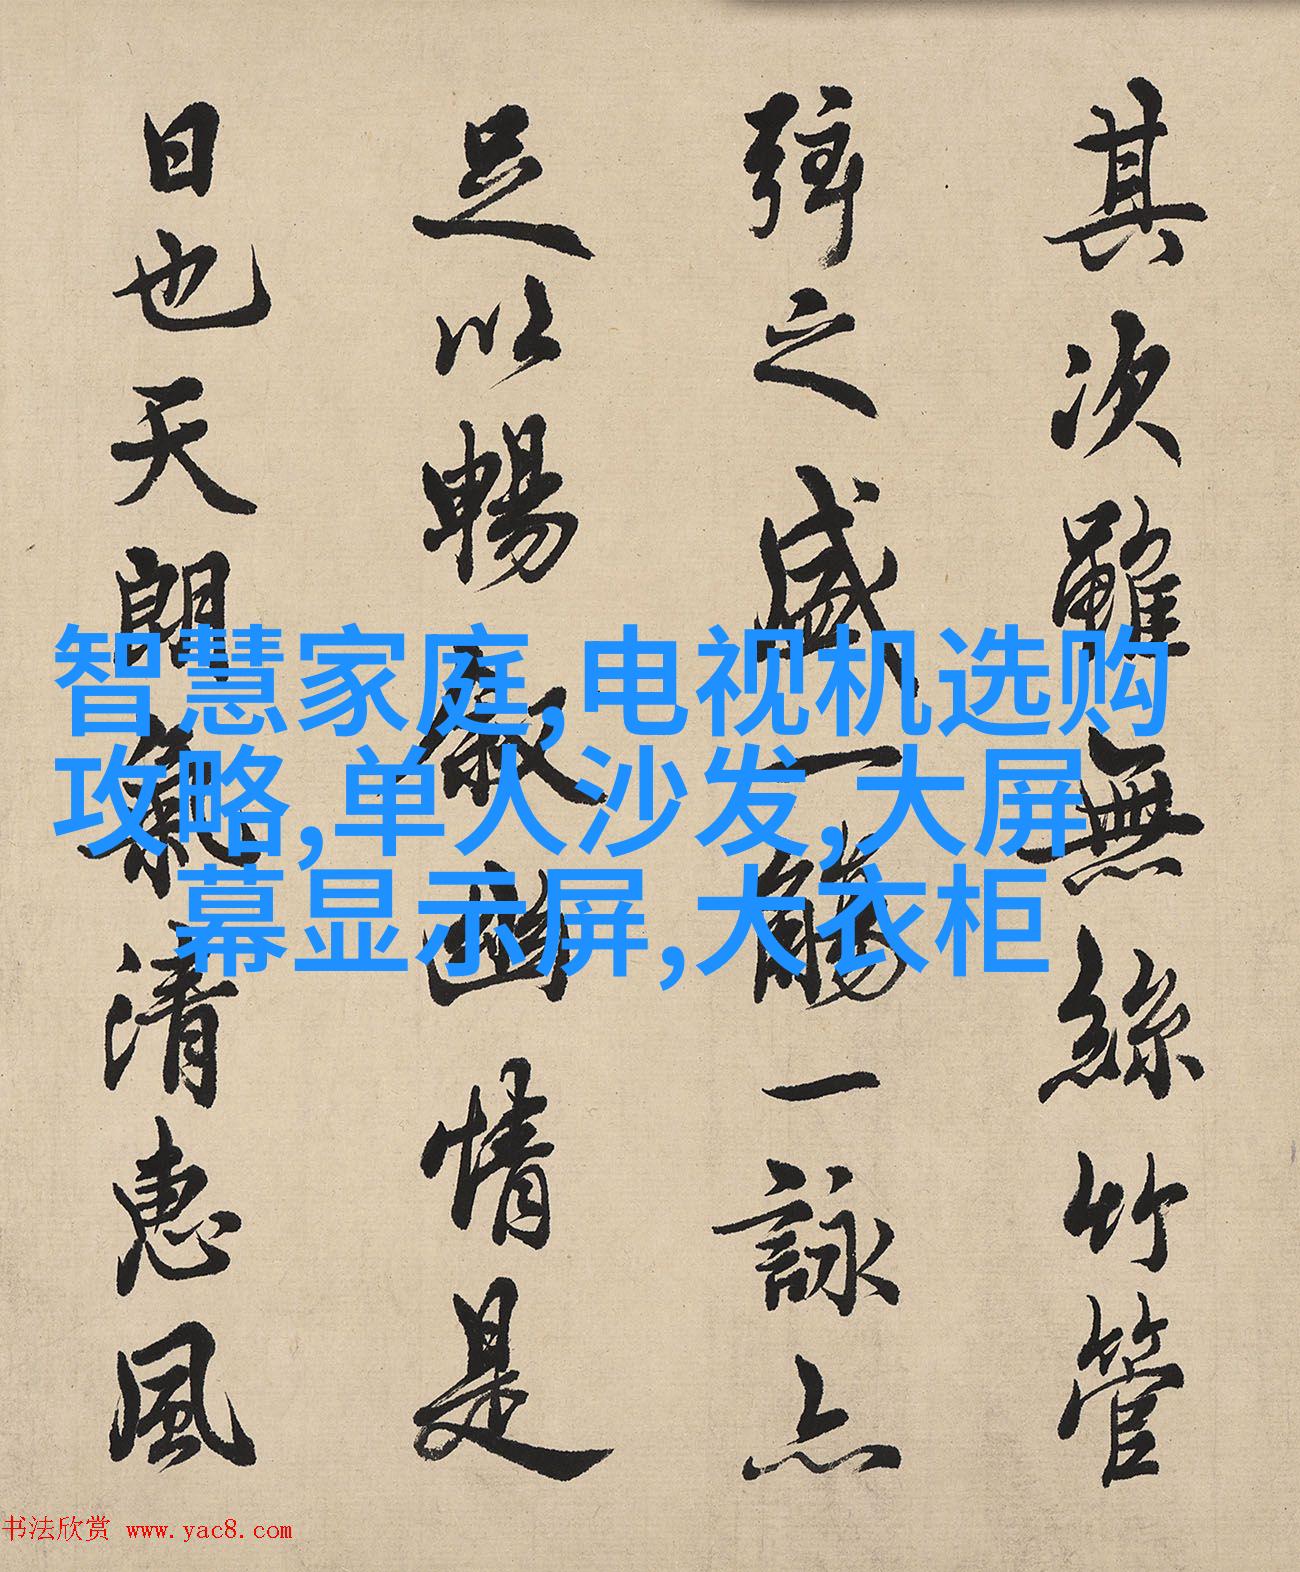 其次雖無絲竹管
弦之盛一觴一詠亦
足以暢敘幽情是
日也天朗氣清惠風
智慧家庭,电视机选购
攻略,单人沙发,大屏
幕显示屏,大衣柜
书法欣赏 www.yac8.com